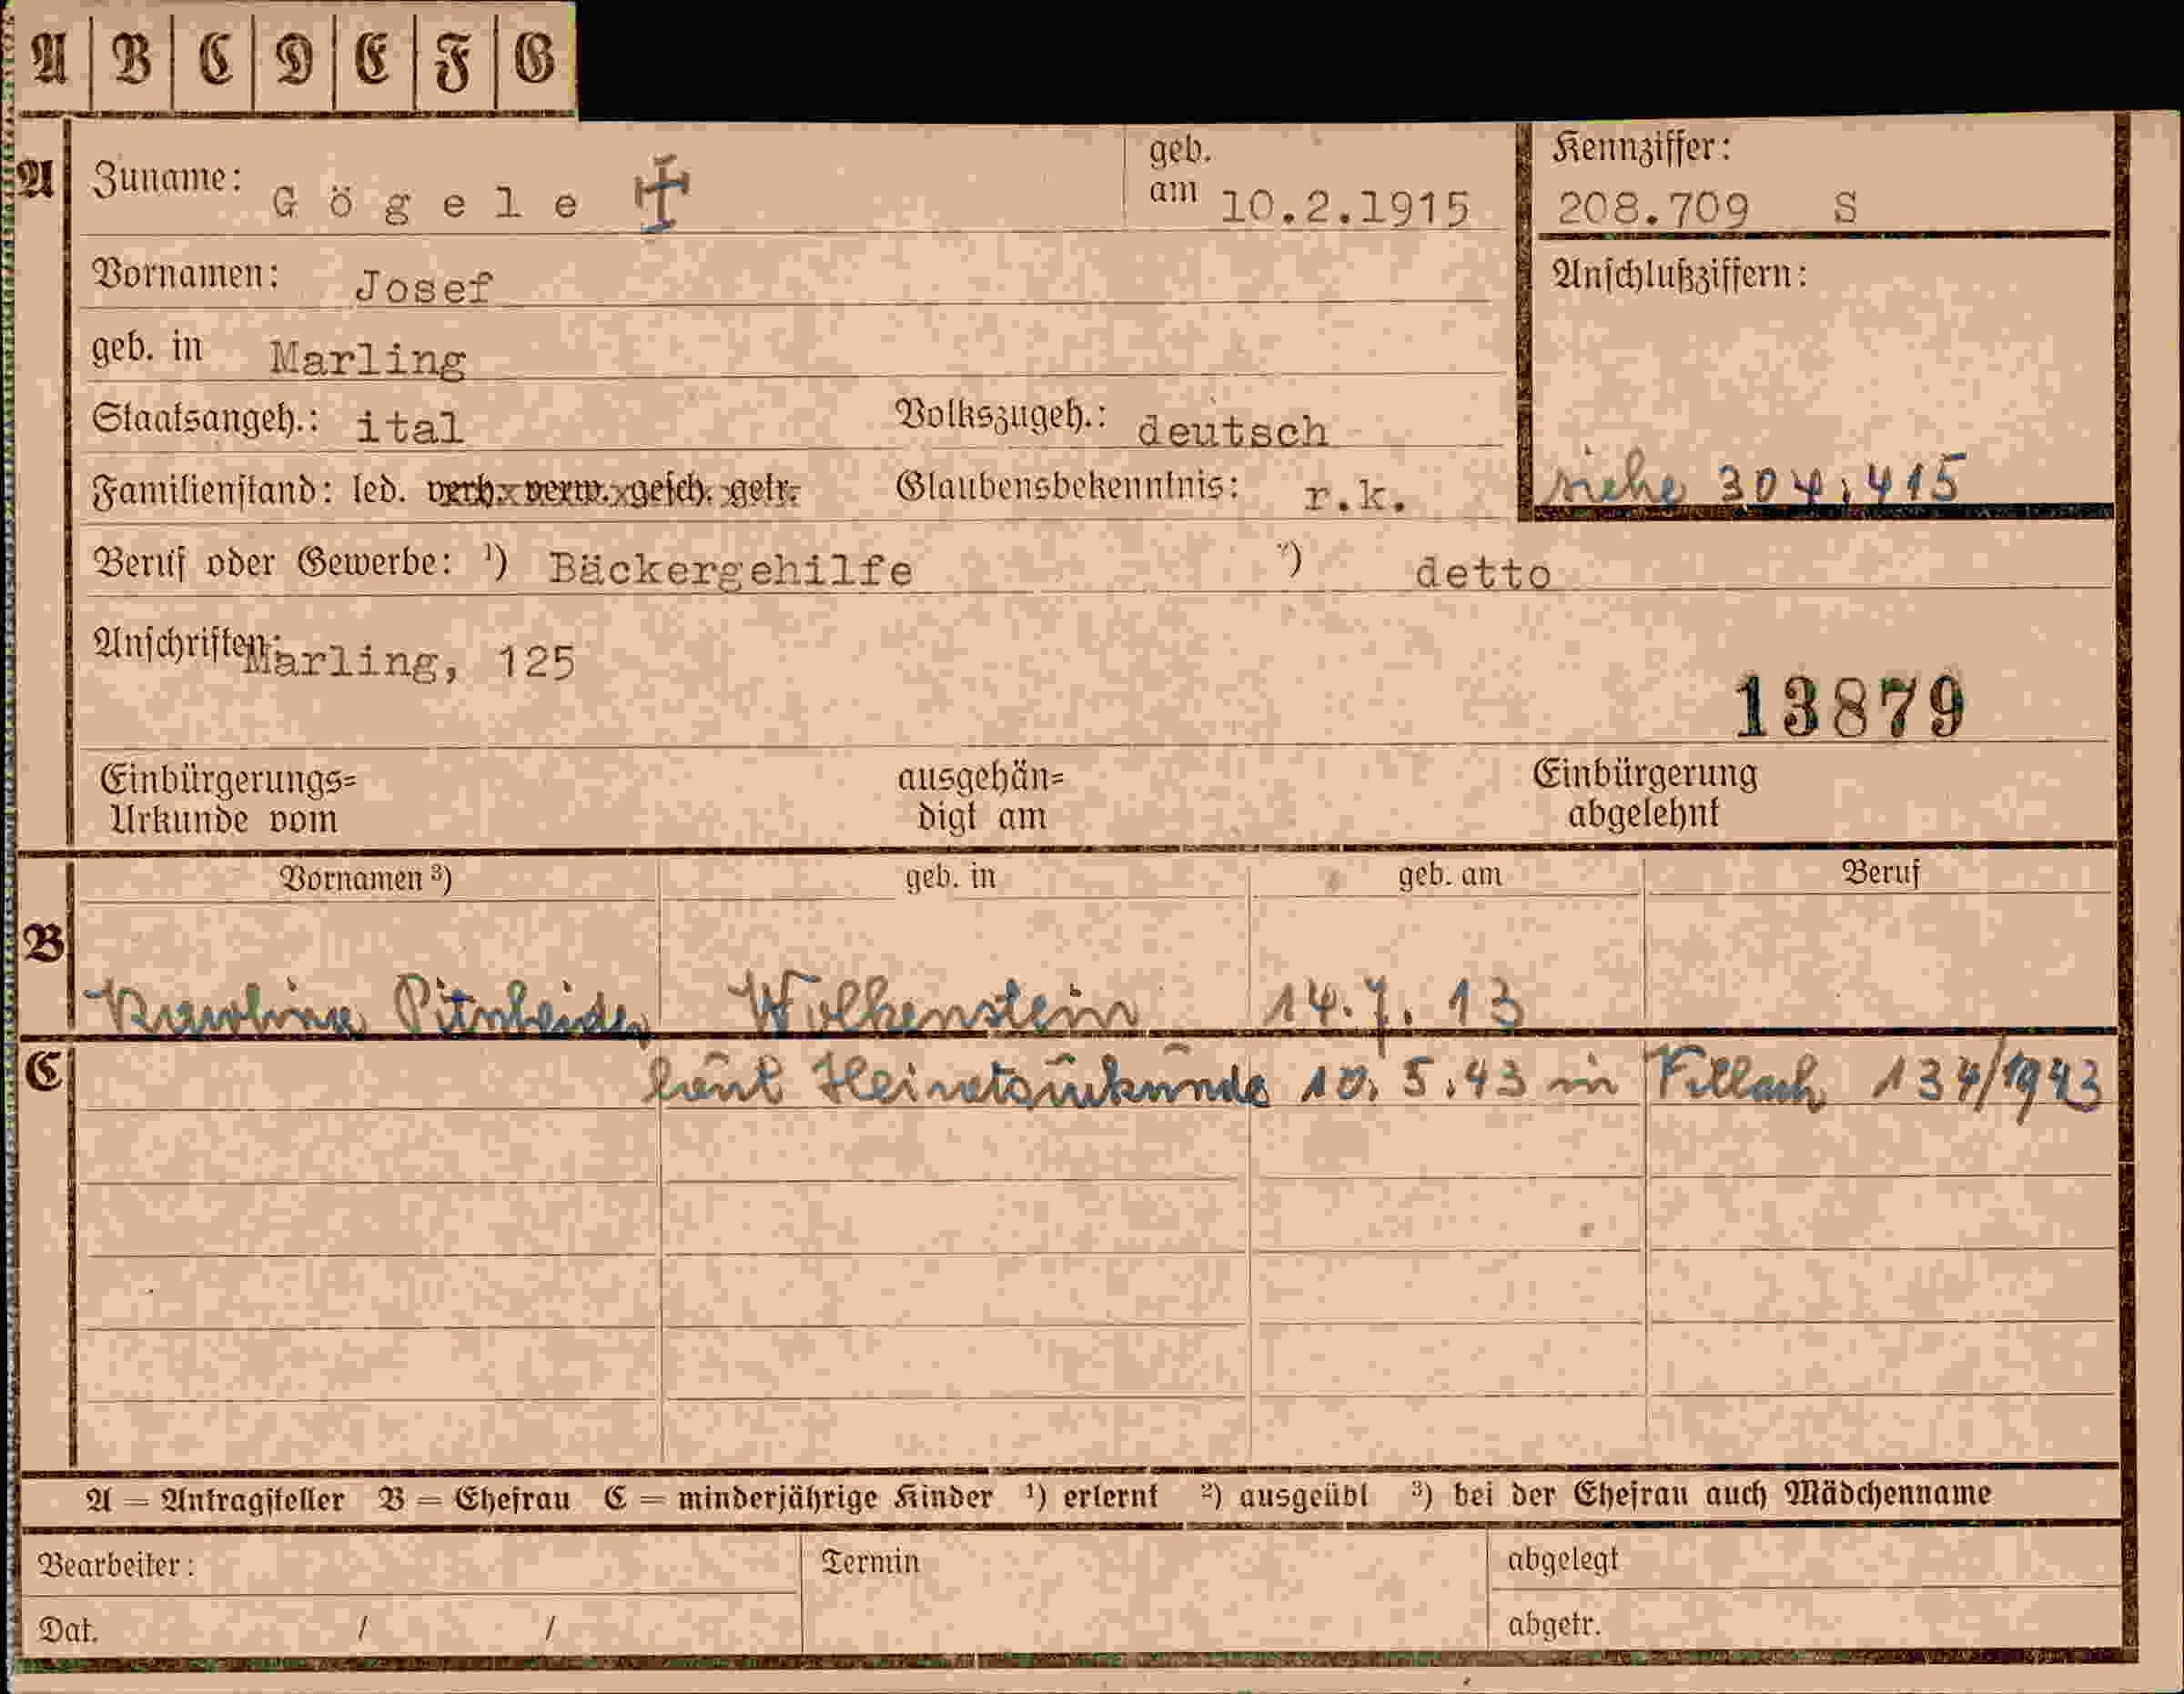 A B C D E F G
A Zuname: Gögele geb. am 10.2.1915 Kennziffer: 208.709 S
Vornamen: Josef Anschlußziffern:
geb. in Marling
Staatsangeh.: ital Volkszugeh.: deutsch
Familienstand: led. verh. verw. gesch. getr. Glaubensbekenntnis: r.k. siehe 304.415
Beruf oder Gewerbe: ¹) Bäckergehilfe ²) detto
Anschriften: Marling, 125
13879
Einbürgerungs= ausgehän= Einbürgerung
Urkunde vom digt am abgelehnt
Vornamen ³) geb. in geb. am Beruf
B Karolina Pitscheider Wolkenstein 14.7.13
C laut Heiratsurkunde 10.5.43 in Villach 134/1943
A = Antragsteller B = Ehefrau C = minderjährige Kinder ¹) erlernt ²) ausgeübt ³) bei der Ehefrau auch Mädchenname
Bearbeiter: Termin abgelegt
Dat. / / abgetr.